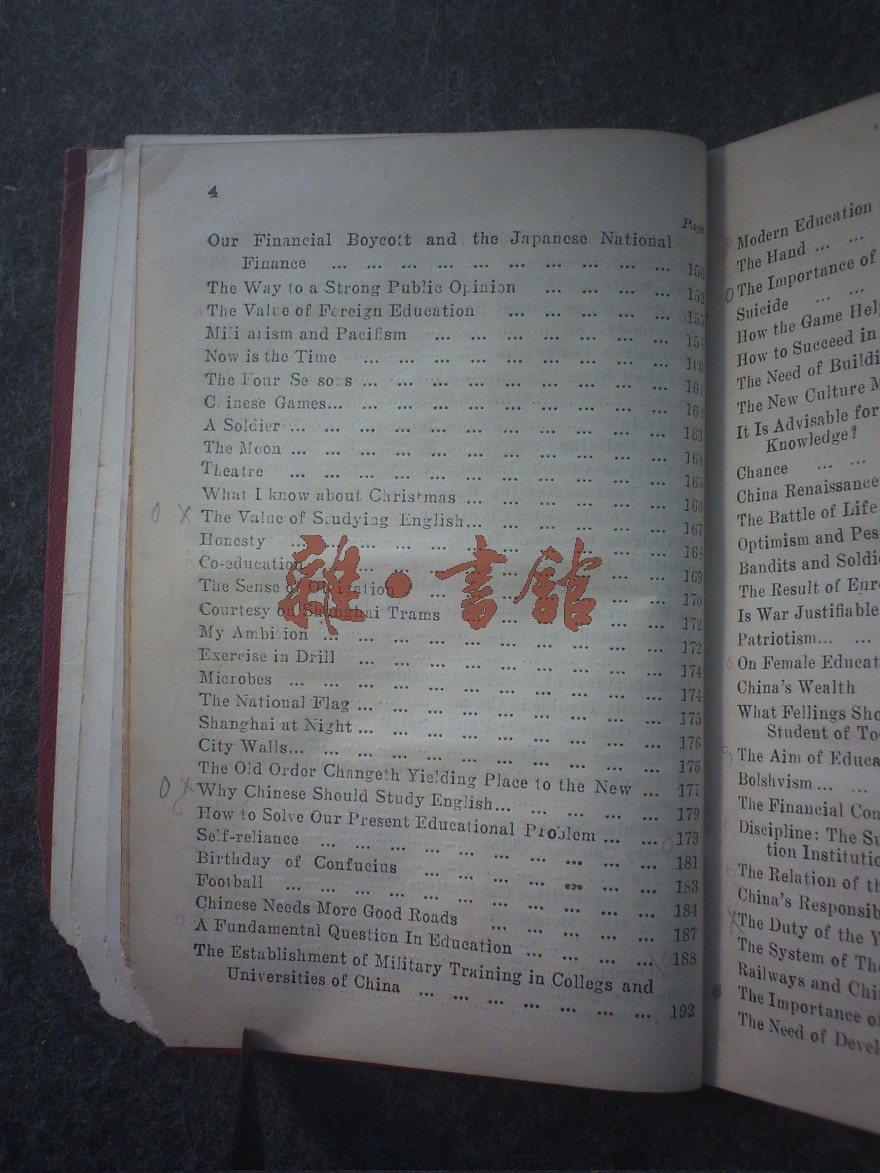 4
Page
Our Financial Boycott and the Japanese National
Finance ... ... ... ... ... ... ... ... ... ... 150
The Way to a Strong Public Opinion ... ... ... ... 152
The Value of Foreign Education ... ... ... ... ... 155
Militarism and Pacifism ... ... ... ... ... ... ...
Now is the Time ... ... ... ... ... ... ... ... ... 160
The Four Seasons ... ... ... ... ... ... ... ... ... 161
Chinese Games... ... ... ... ... ... ... ... ... ... 162
A Soldier ... ... ... ... ... ... ... ... ... ... ... 163
The Moon ... ... ... ... ... ... ... ... ... ... ... 164
Theatre ... ... ... ... ... ... ... ... ... ... ... 165
What I know about Christmas ... ... ... ... ... ... 166
The Value of Studying English... ... ... ... ... ... 167
Honesty ... ... ... ... ... ... ... ... ... ... ... 168
Co-education ... ... ... ... ... ... ... ... ... ... 169
The Sense of Obligation ... ... ... ... ... ... ... 170
Courtesy on Shanghai Trams ... ... ... ... ... ... 172
My Ambition ... ... ... ... ... ... ... ... ... ... 172
Exercise in Drill ... ... ... ... ... ... ... ... ... 174
Microbes ... ... ... ... ... ... ... ... ... ... ... 174
The National Flag ... ... ... ... ... ... ... ... ... 175
Shanghai at Night ... ... ... ... ... ... ... ... ... 176
City Walls... ... ... ... ... ... ... ... ... ... ... 176
The Old Order Changeth Yielding Place to the New ... 177
Why Chinese Should Study English... ... ... ... ... 179
How to Solve Our Present Educational Problem ... ... 179
Self-reliance ... ... ... ... ... ... ... ... ... ... 181
Birthday of Confucius ... ... ... ... ... ... ... 183
Football ... ... ... ... ... ... ... ... ... ... ... 184
Chinese Needs More Good Roads ... ... ... ... ... 187
A Fundamental Question In Education ... ... ... ... 188
The Establishment of Military Training in Collegs and
Universities of China ... ... ... ... ... ... ... 192
雜·書館
Modern Education
The Hand ... ...
The Importance of
Suicide ... ...
How the Game Help
How to Succeed in
The Need of Buildi
The New Culture M
It Is Advisable for
Knowledge?
Chance ... ...
China Renaissance
The Battle of Life
Optimism and Pes
Bandits and Soldie
The Result of Euro
Is War Justifiable
Patriotism... ...
On Female Educat
China's Wealth
What Fellings Sho
Student of To-
The Aim of Educa
Bolshvism ... ...
The Financial Con
Discipline: The Su
tion Institutio
The Relation of th
China's Responsib
The Duty of the Y
The System of The
Railways and Chi
The Importance of
The Need of Devel